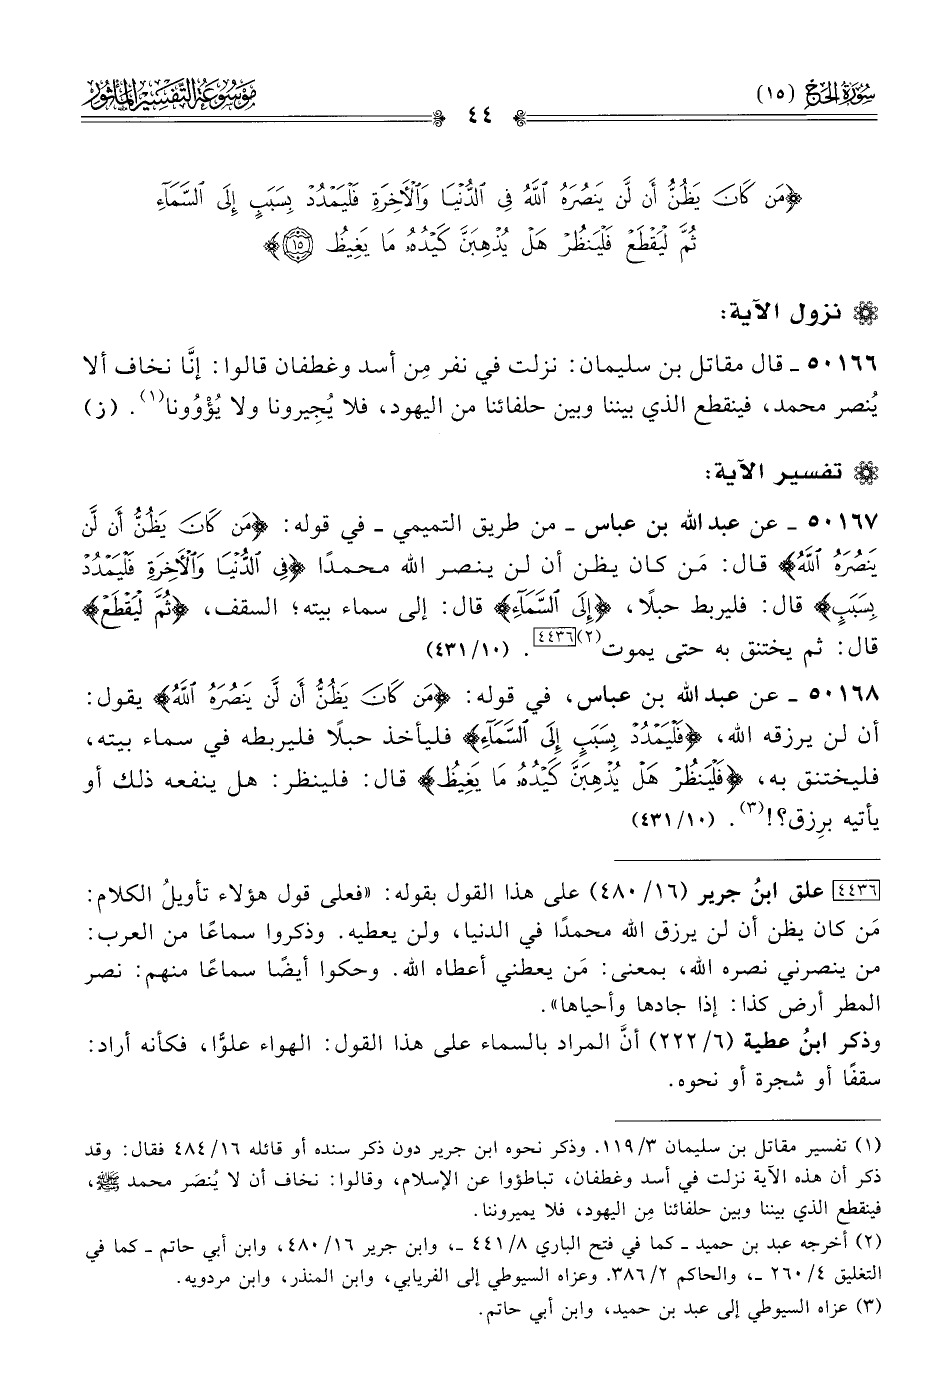 سورة الحج (١٥)
٤٤
موسوعة التفسير المأثور
﴿مَن كَانَ يَظُنُّ أَن لَّن يَنصُرَهُ ٱللَّهُ فِى ٱلدُّنْيَا وَٱلْـَٔاخِرَةِ فَلْيَمْدُدْ بِسَبَبٍ إِلَى ٱلسَّمَآءِ
ثُمَّ لْيَقْطَعْ فَلْيَنظُرْ هَلْ يُذْهِبَنَّ كَيْدُهُۥ مَا يَغِيظُ ١٥﴾
نزول الآية:
٥٠١٦٦ ـ قال مقاتل بن سليمان: نزلت في نفر مِن أسد وغطفان قالوا: إنَّا نخاف ألا
يُنصر محمد، فينقطع الذي بيننا وبين حلفائنا من اليهود، فلا يُجيرونا ولا يُؤْوُونا(١). (ز)
تفسير الآية:
٥٠١٦٧ ـ عن عبد الله بن عباس ـ من طريق التميمي ـ في قوله: ﴿مَن كَانَ يَظُنُّ أَن لَّن
يَنصُرَهُ ٱللَّهُ﴾ قال: مَن كان يظن أن لن ينصر الله محمدًا ﴿فِى ٱلدُّنْيَا وَٱلْـَٔاخِرَةِ فَلْيَمْدُدْ
بِسَبَبٍ﴾ قال: فليربط حبلًا، ﴿إِلَى ٱلسَّمَآءِ﴾ قال: إلى سماء بيته؛ السقف، ﴿ثُمَّ لْيَقْطَعْ﴾
قال: ثم يختنق به حتى يموت(٢)[٤٤٣٦]. (١٠/٤٣١)
٥٠١٦٨ ـ عن عبد الله بن عباس، في قوله: ﴿مَن كَانَ يَظُنُّ أَن لَّن يَنصُرَهُ ٱللَّهُ﴾ يقول:
أن لن يرزقه الله، ﴿فَلْيَمْدُدْ بِسَبَبٍ إِلَى ٱلسَّمَآءِ﴾ فليأخذ حبلًا فليربطه في سماء بيته،
فليختنق به، ﴿فَلْيَنظُرْ هَلْ يُذْهِبَنَّ كَيْدُهُۥ مَا يَغِيظُ﴾ قال: فلينظر: هل ينفعه ذلك أو
يأتيه برِزق؟!(٣). (١٠/٤٣١)
[٤٤٣٦] علق ابنُ جرير (١٦/٤٨٠) على هذا القول بقوله: «فعلى قول هؤلاء تأويلُ الكلام:
مَن كان يظن أن لن يرزق الله محمدًا في الدنيا، ولن يعطيه. وذكروا سماعًا من العرب:
من ينصرني نصره الله، بمعنى: مَن يعطني أعطاه الله. وحكوا أيضًا سماعًا منهم: نصر
المطر أرض كذا: إذا جادها وأحياها».
وذكر ابنُ عطية (٦/٢٢٢) أنَّ المراد بالسماء على هذا القول: الهواء علوًّا، فكأنه أراد:
سقفًا أو شجرة أو نحوه.
(١) تفسير مقاتل بن سليمان ٣/١١٩. وذكر نحوه ابن جرير دون ذكر سنده أو قائله ١٦/٤٨٤ فقال: وقد
ذكر أن هذه الآية نزلت في أسد وغطفان، تباطؤوا عن الإسلام، وقالوا: نخاف أن لا يُنصَر محمد ﷺ،
فينقطع الذي بيننا وبين حلفائنا مِن اليهود، فلا يميروننا.
(٢) أخرجه عبد بن حميد ـ كما في فتح الباري ٨/٤٤١ ـ، وابن جرير ١٦/٤٨٠، وابن أبي حاتم ـ كما في
التغليق ٤/٢٦٠ ـ، والحاكم ٢/٣٨٦. وعزاه السيوطي إلى الفريابي، وابن المنذر، وابن مردويه.
(٣) عزاه السيوطي إلى عبد بن حميد، وابن أبي حاتم.